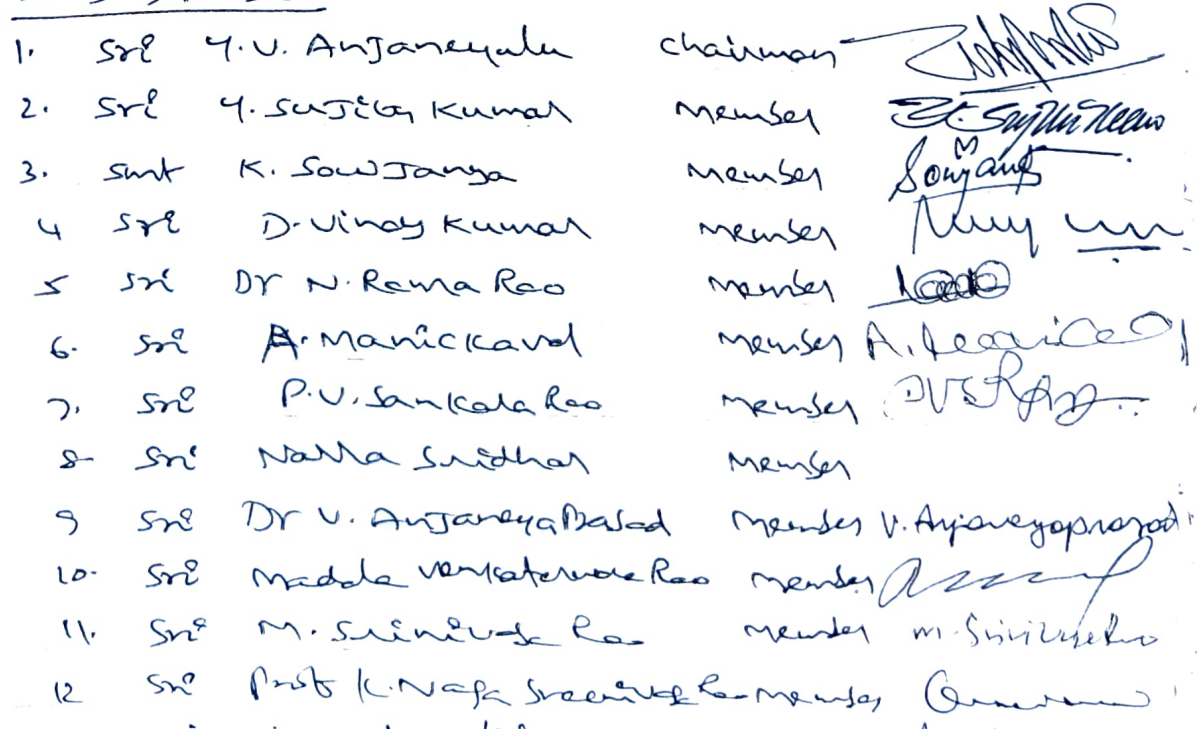 1. Sri Y.V. Anjaneyulu Chairman
2. Sri Y. Sujith Kumar Member
3. Smt K. Sowjanya Member Sowjanya
4 Sri D. Vinay Kumar Member
5 Sri Dr N. Rama Rao Member
6. Sri A. Manickavel Member
7. Sri P.V. Sankara Rao Member
8- Sri Nalla Sridhar Member
9 Sri Dr V. Anjaneya Prasad Member V. Anjaneyaprasad
10- Sri Madda Venkateswara Rao Member
11. Sri M. Srinivasa Rao Member M. Srinivasa Rao
12 Sri Prof K. Naga Sreenivasa Rao Member